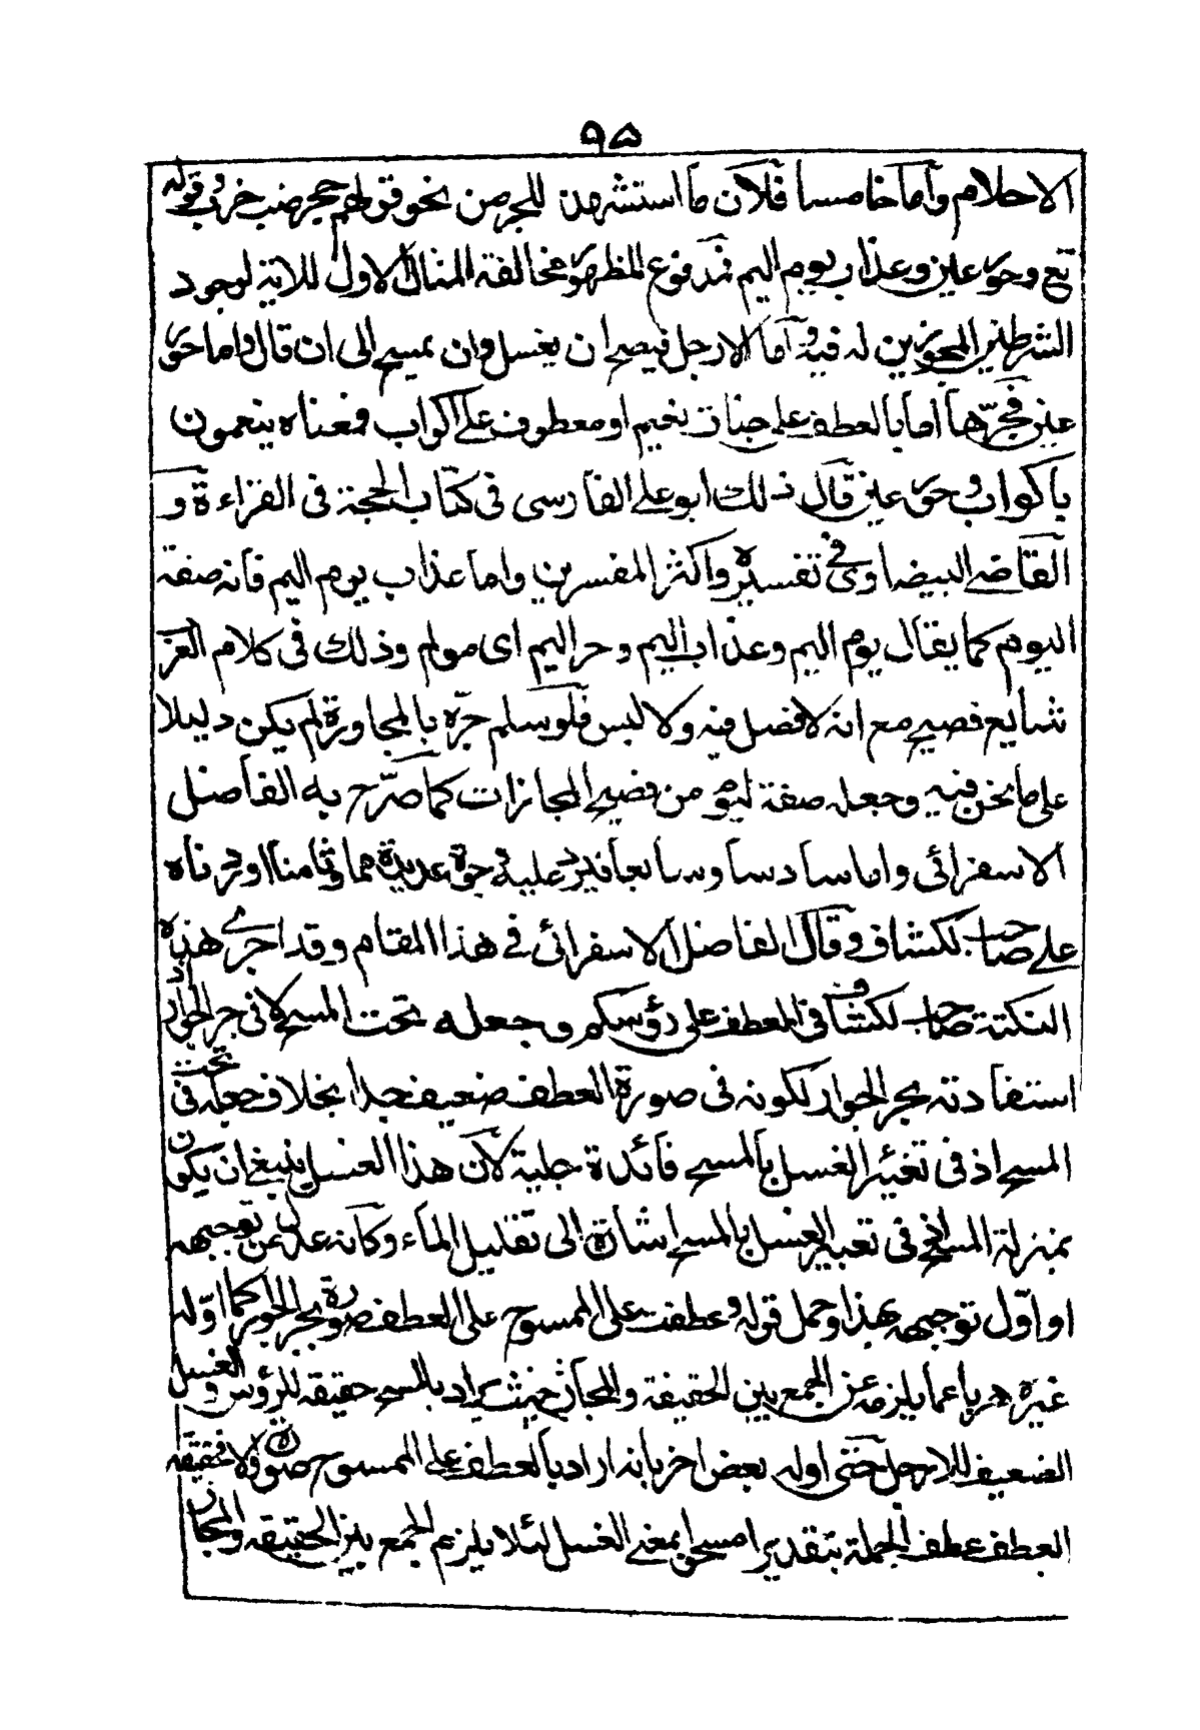 ٩٥
الاحلام وأما خامسا فلان ما استشهدن للجر من نحو قولهم جحر ضب خرب وقوله
تع وحور عين وعذاب يوم اليم فمدفوع لظهور مخالفة المثال الاول للاية لوجود
الشرطين المجوزين له فيه وأما الارجل فيصح ان يغسل وان يمسح الى ان قال واما حور
عين فجرها اما بالعطف على جنات نعيم او معطوف على اكواب فمعناه ينعمون
باكواب وحور عين قال ذلك ابو علي الفارسى فى كتاب الحجة فى القراءة و
القاضي البيضاوى في تفسيره واكثر المفسرين واما عذاب يوم اليم فانه صفة
اليوم كما يقال يوم اليم وعذاب اليم وحر اليم اى مولم وذلك فى كلام العرب
شايع فصيح مع انه لا فصل فيه ولا لبس فلو سلم جرّه بالمجاورة لم يكن دليلا
على ما نحن فيه وجعله صفة ليوم من فصيح المجازات كما صرّح به الفاضل
الاسفرائى واما سادسا وسابعا فيرد عليه وجوه عديدة مما وثامنا اوردناه
على صاحب لكشاف وقال الفاضل الاسفرائى في هذا المقام وقد اجرى هذه
النكتة صاحب لكشاف فى العطف على رؤسكم وجعله تحت المسح لا فى جر الجوار اذ
استفادته بجر الجوار لكونه فى صورة العطف ضعيف جدا بخلاف جعله فى تحت
المسح اذ فى تغيير الغسل بالمسح فائدة جلية لأن هذا الغسل ينبغي ان يكون
بمنزلة المسح ففى تعبير الغسل بالمسح اشارة الى تقليل الماء وكانه عدل عن توجيهه
او اوّل توجيهه بهذا وحمل قوله وعطفت على الممسوح على العطف صورة بجر الجوار كما اوّله
غيره هربا عما يلزمه عن الجمع بين الحقيقة والمجاز حيث يراد بالمسح حقيقه للرؤس والغسل
الضعيف للارجل حتى اوله بعض اخر بانه اراد بالعطف على الممسوح صورة والا فحقيقه
العطف عطف الجملة بتقدير امسحوا بمعنى الغسل لئلا يلزم الجمع بين الحقيقه والمجاز